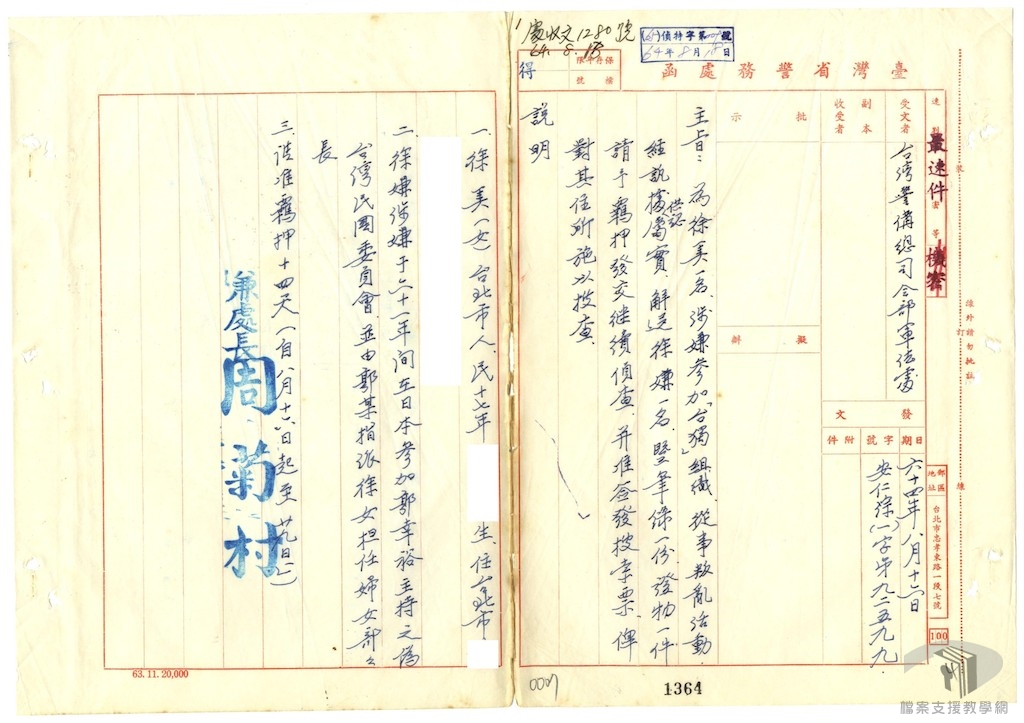 處收文1280號
64.8.18
(64)偵特字第 號
64年8月18日
保存年限
檔號
得
臺灣省警務處函
速別
最速件
密等
機密
受文者
台灣警備總司令部軍法處
副本
收受者
批示
擬辦
發文
日期
字號
附件
六十四年八月十六日
安仁徐(一)字第九二五九九
郵區
地址
台北市忠孝東路一段七號
100
線外請勿批註
裝
訂
線
主旨:為徐美一名,涉嫌參加「台獨」組織,從事叛亂活動,
經訊據供認屬實,解送徐嫌一名,暨筆錄一份,證物一件
請予羈押發交繼續偵查,并准簽發搜索票,俾
對其住所施以搜查。
說明
一、徐美一女 台北市人,民十七年 生,住台北市
二、徐嫌涉嫌于六十一年間在日本參加郭幸裕主持之偽
台灣民國委員會,並由郭某指派徐女担任婦女部々
長
三、請准羈押十四天(自八月十六日起至廿九日止)
兼處長周菊村
63.11.20,000
0007
1364
檔案支援教學網